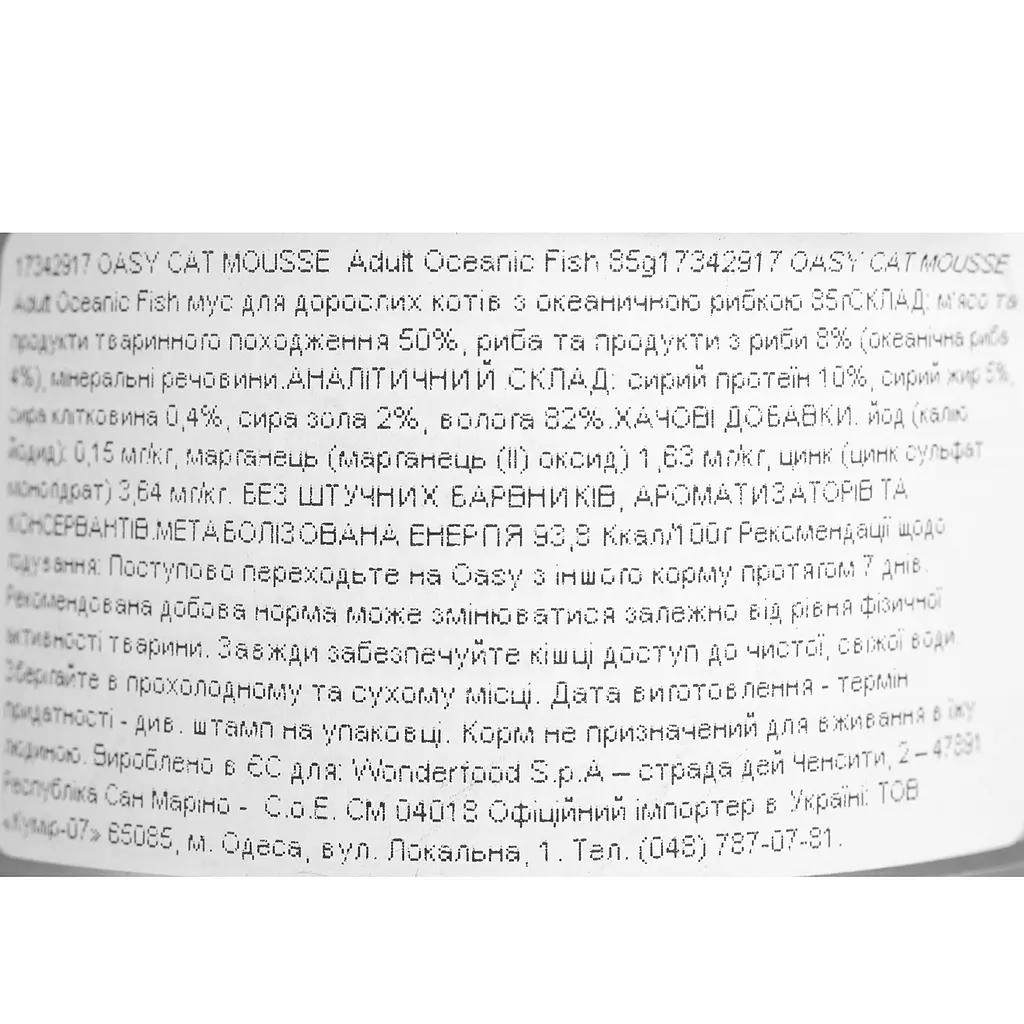 17342917 OASY CAT MOUSSE Adult Oceanic Fish 85g17342917 OASY CAT MOUSSE
Adult Oceanic Fish мус для дорослих котів з океаничною рибкою 85гСКЛАД: м'ясо та
продукти тваринного походження 50%, риба та продукти з риби 8% (океанічна риба
4%), мінеральні речовини.АНАЛІТИЧНИЙ СКЛАД: сирий протеїн 10%, сирий жир 5%,
сира клітковина 0,4%, сира зола 2%, волога 82%.ХАЧОВІ ДОБАВКИ: йод (калію
йодид): 0,15 мг/кг, марганець (марганець (II) оксид) 1,63 мг/кг, цинк (цинк сульфат
моногідрат) 3,64 мг/кг. БЕЗ ШТУЧНИХ БАРВНИКІВ, АРОМАТИЗАТОРІВ ТА
КОНСЕРВАНТІВ.МЕТАБОЛІЗОВАНА ЕНЕРГІЯ 93,8 Ккал/100г Рекомендації щодо
годування: Поступово переходьте на Oasy з іншого корму протягом 7 днів.
Рекомендована добова норма може змінюватися залежно від рівня фізичної
активності тварини. Завжди забезпечуйте кішці доступ до чистої, свіжої води.
Зберігайте в прохолодному та сухому місці. Дата виготовлення - термін
придатності - див. штамп на упаковці. Корм не призначений для вживання в їжу
людиною. Вироблено в ЄС для: Wonderfood S.p.A – страда дей Ченсити, 2 – 47891
Республіка Сан Маріно - C.o.E. СМ 04018 Офіційний імпортер в Україні: ТОВ
«Кумр-07» 65085, м. Одеса, вул. Локальна, 1. Тел. (048) 787-07-81.